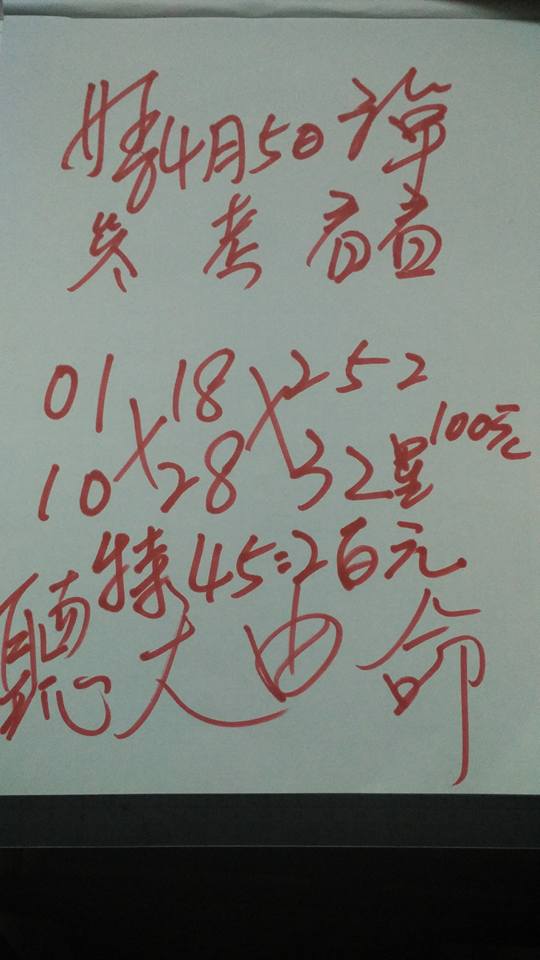 4月5日
参考看看
01 × 18 × 25 2
10 28 32星100元
特45=2百元
聽天由命